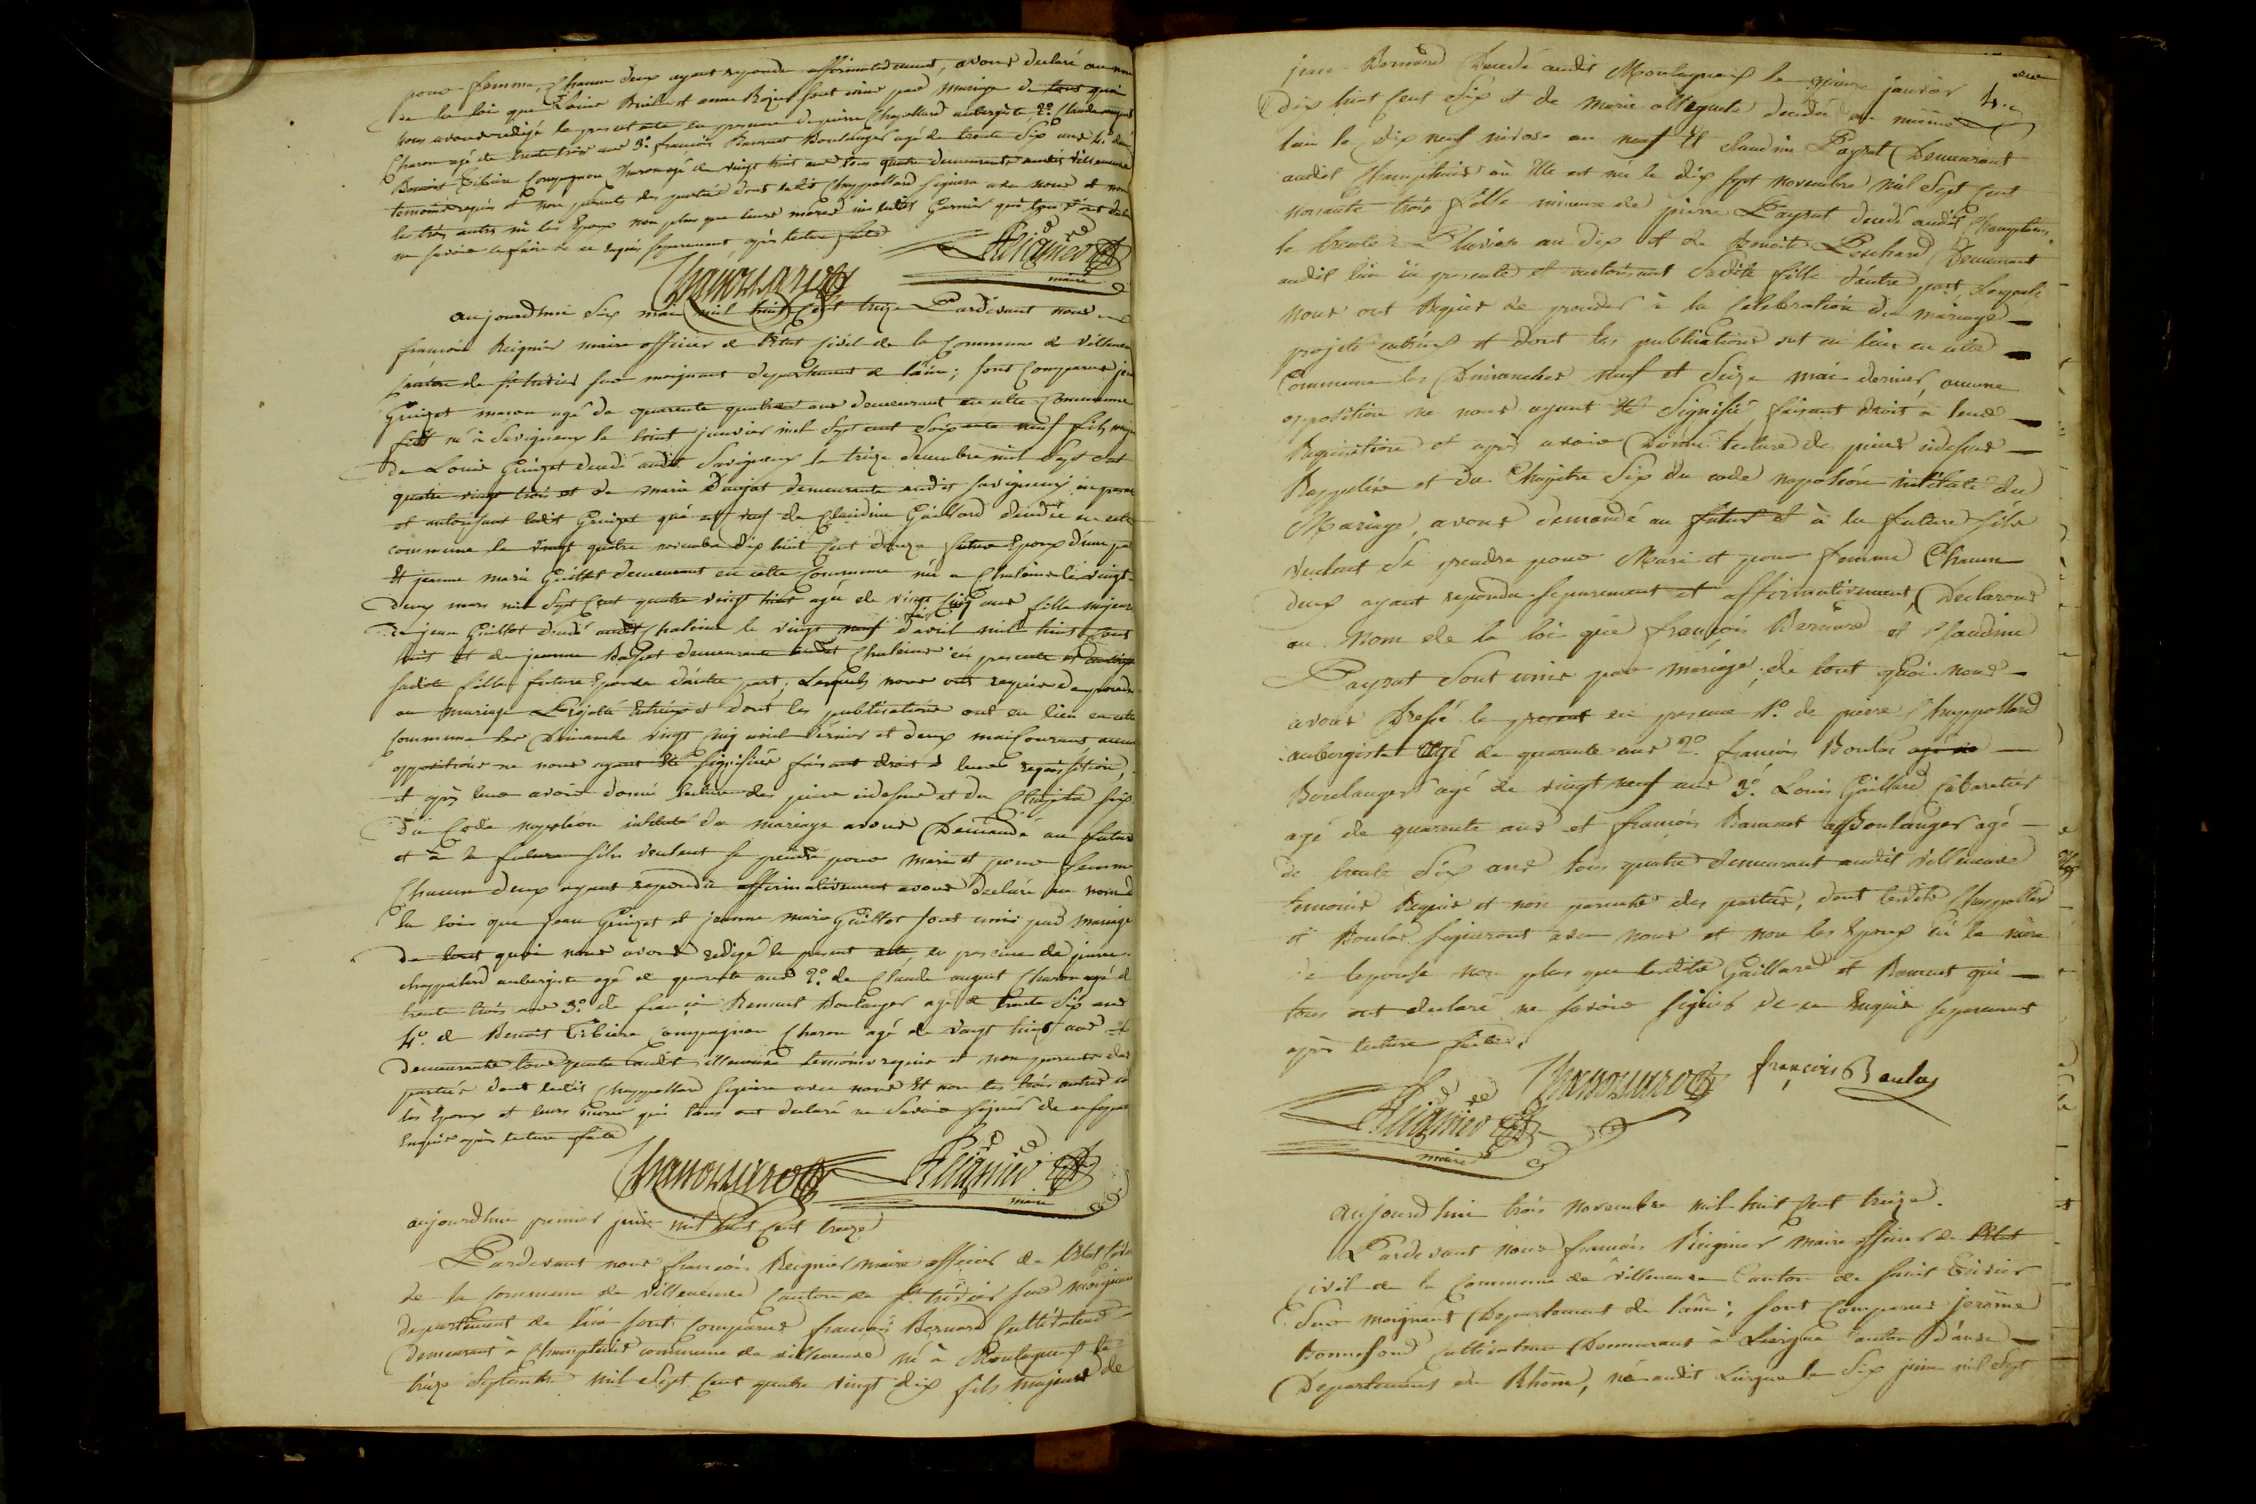 pour femme, Chacun deux ayant repondu affirmativement, avons declaré au nom
de la loi que Brulet et anne sont unis par mariage de tout quoi
nous avons redigé le present acte en presence de pierre Chappollard aubergiste 2º. Claude august
Charon agé de trente trois ans 3º. françois Bannet Boulanger agé de trente Six ans 4º. de
Benoit Tibière Compagnon Charon agé de vingt huit ans tous quatre demeurants audit villeneuve
temoins requis et non parents des parties dont ledit Chappollard signera avec nous et non
les trois autres ni les Epoux non plus que leurs meres ni ledit Garnier qui tous ont declaré
ne savoir le faire de ce requis separement, après lecture faite
Reignier
maire
aujourdhui Six mai mil huit Cent treize Pardevant nous
françois Reignier maire officier de l'Etat Civil de la Commune de Villeneuve
Canton de St. trivier sur moignant departement de l'ain; sont Comparus jean
Guizet macon agé de quarente quatre ans demeurant en cette Commune
né à Savigneux le huit janvier mil Sept cent Soixante neuf fils majeur
de Louis Guizet decedé audit Savigneux le treize decembre mil Sept cent
quatre vingt trois et de marie Daujat demeurante audit Savigneux ici presente
et autorisant ledit Guizet qui est veuf de Claudine Gaillard decedée en cette
commune le vingt quatre novembre dix huit Cent douze futur Epoux d'une part
Et jeanne marie Guillot demeurant en cette Commune née a Chaleins le vingt
deux mars mil Sept Cent quatre vingt huit agée de vingt Cinq ans fille majeure
de jean Guillot decedé audit Chaleins le vingt neuf d'avril mil huit Cent
huit Et de jeanne Basset demeurante audit Chaleins ici presente et autorisant
sadite fille future Epouse d'autre part; Lesquels nous ont requis de proceder
au mariage Projetté Entr'eux et dont les publications ont eu lieu en cette
Commune les Dimanche vingt Cinq avril dernier et deux mai Courant aucune
oppositions ne nous ayant été signifiées faisant droit à leurs requisition,
et après leur avoir donné lecture des pieces cidessus et du Chapitre six
du Code napoléon intitulé du mariage avons Demandé au futur
et à la future sils veulent se prendre pour mari et pour femme
Chacun deux ayant repondu affirmativement avons declaré au nom de
la loi que jean Guizet et jeanne marie Guillot sont unis par mariage
de tout quoi nous avons redigé le present acte, en presence de pierre
chappollard aubergiste agé de quarente ans 2º. de Claude august Charon agé de
trente trois ans 3º. de françois Bannet Boulanger agé de trente Six ans
4º. de Benoit Tibière Compagnon Charon agé de vingt huit ans
demeurants tous quatre audit villeneuve temoins requis et non parents des
parties dont ledit Chappollard signera avec nous Et non les trois autres ni
les Epoux et leurs meres qui tous ont declaré ne Savoir signer de ce
Enquis après lecture faite
Reignier
maire
aujourdhui premier juin mil huit Cent treize
Pardevant nous françois Reignier maire officier de l'Etat Civil
de la Commune de villeneuve Canton de St. trivier sur moignant
departement de l'ain sont Comparus françois Bernard Cultivateur
Demeurant à Champtiers commune de villeneuve né à Montagneux le
treize Septembre mil Sept Cent quatre vingt dix fils majeur de
jean Bernard Decedé audit Montagneux le janvier
dix huit Cent Six et de marie decedée au même
lieu le dix neuf nivose an neuf Et Claudine Payrat Demeurant
audit Champtiers où Elle est née le dix Sept novembre mil Sept Cent
nonante trois fille mineure de pierre Payrat decedé audit Champtiers
le trente Pluviose an dix et de Benoite Pochard Demeurant
audit lieu ici presente et autorisant Sadite fille d'autre part, Lesquels
nous ont Requis de proceder à la Celebration du mariage
projetté entr'eux et dont les publications ont eu lieu en cette
Commune les Dimanches neuf et Seize mai dernier, aucune
opposition ne nous ayant été Signifiée faisant droit à leur
Requisition et après avoir Donné lecture de pieces cidessus
Rappelées et du Chapitre Six du code napoléon intitulé du
Mariage, avons demandé au futur et à la future sils
veulent Se prendre pour Mari et pour femme Chacun
deux ayant repondu separement et affirmativement, Declarons
au nom de la loi que françois Bernard et Claudine
Payrat Sont unis par mariage, de tout quoi nous
avons Dressé le present en presence 1º. de pierre Chappollard
aubergiste agé de quarente ans 2º. françois Boulas
Boulanger agé de vingt neuf ans 3º. Louis Gaillard Cabaretier
agé de quarente ans et françois Bannet Boulanger agé
de trente Six ans tous quatre demeurant audit villeneuve
temoins Requis et non parents des parties, dont lesdits Chappollard
et Boulas signeront avec nous et non les Epoux ni la mère
de lepouse non plus que lesdits Gaillard et Bannet qui
tous ont declaré ne savoir signer de ce Enquis separement
après lecture faite.
françois Boulas
Reignier
maire
aujourdhui trois novembre mil huit Cent treize.
Pardevant nous françois Reignier maire officier de l'Etat
Civil de la Commune de villeneuve Canton de Saint trivier
Sur moignant Departement de l'ain; sont Comparus jerôme
Bonnefond cultivateur Demeurant à Liergue Canton d'anse
Departement du Rhône, né audit Liergue le Six juin mil Sept